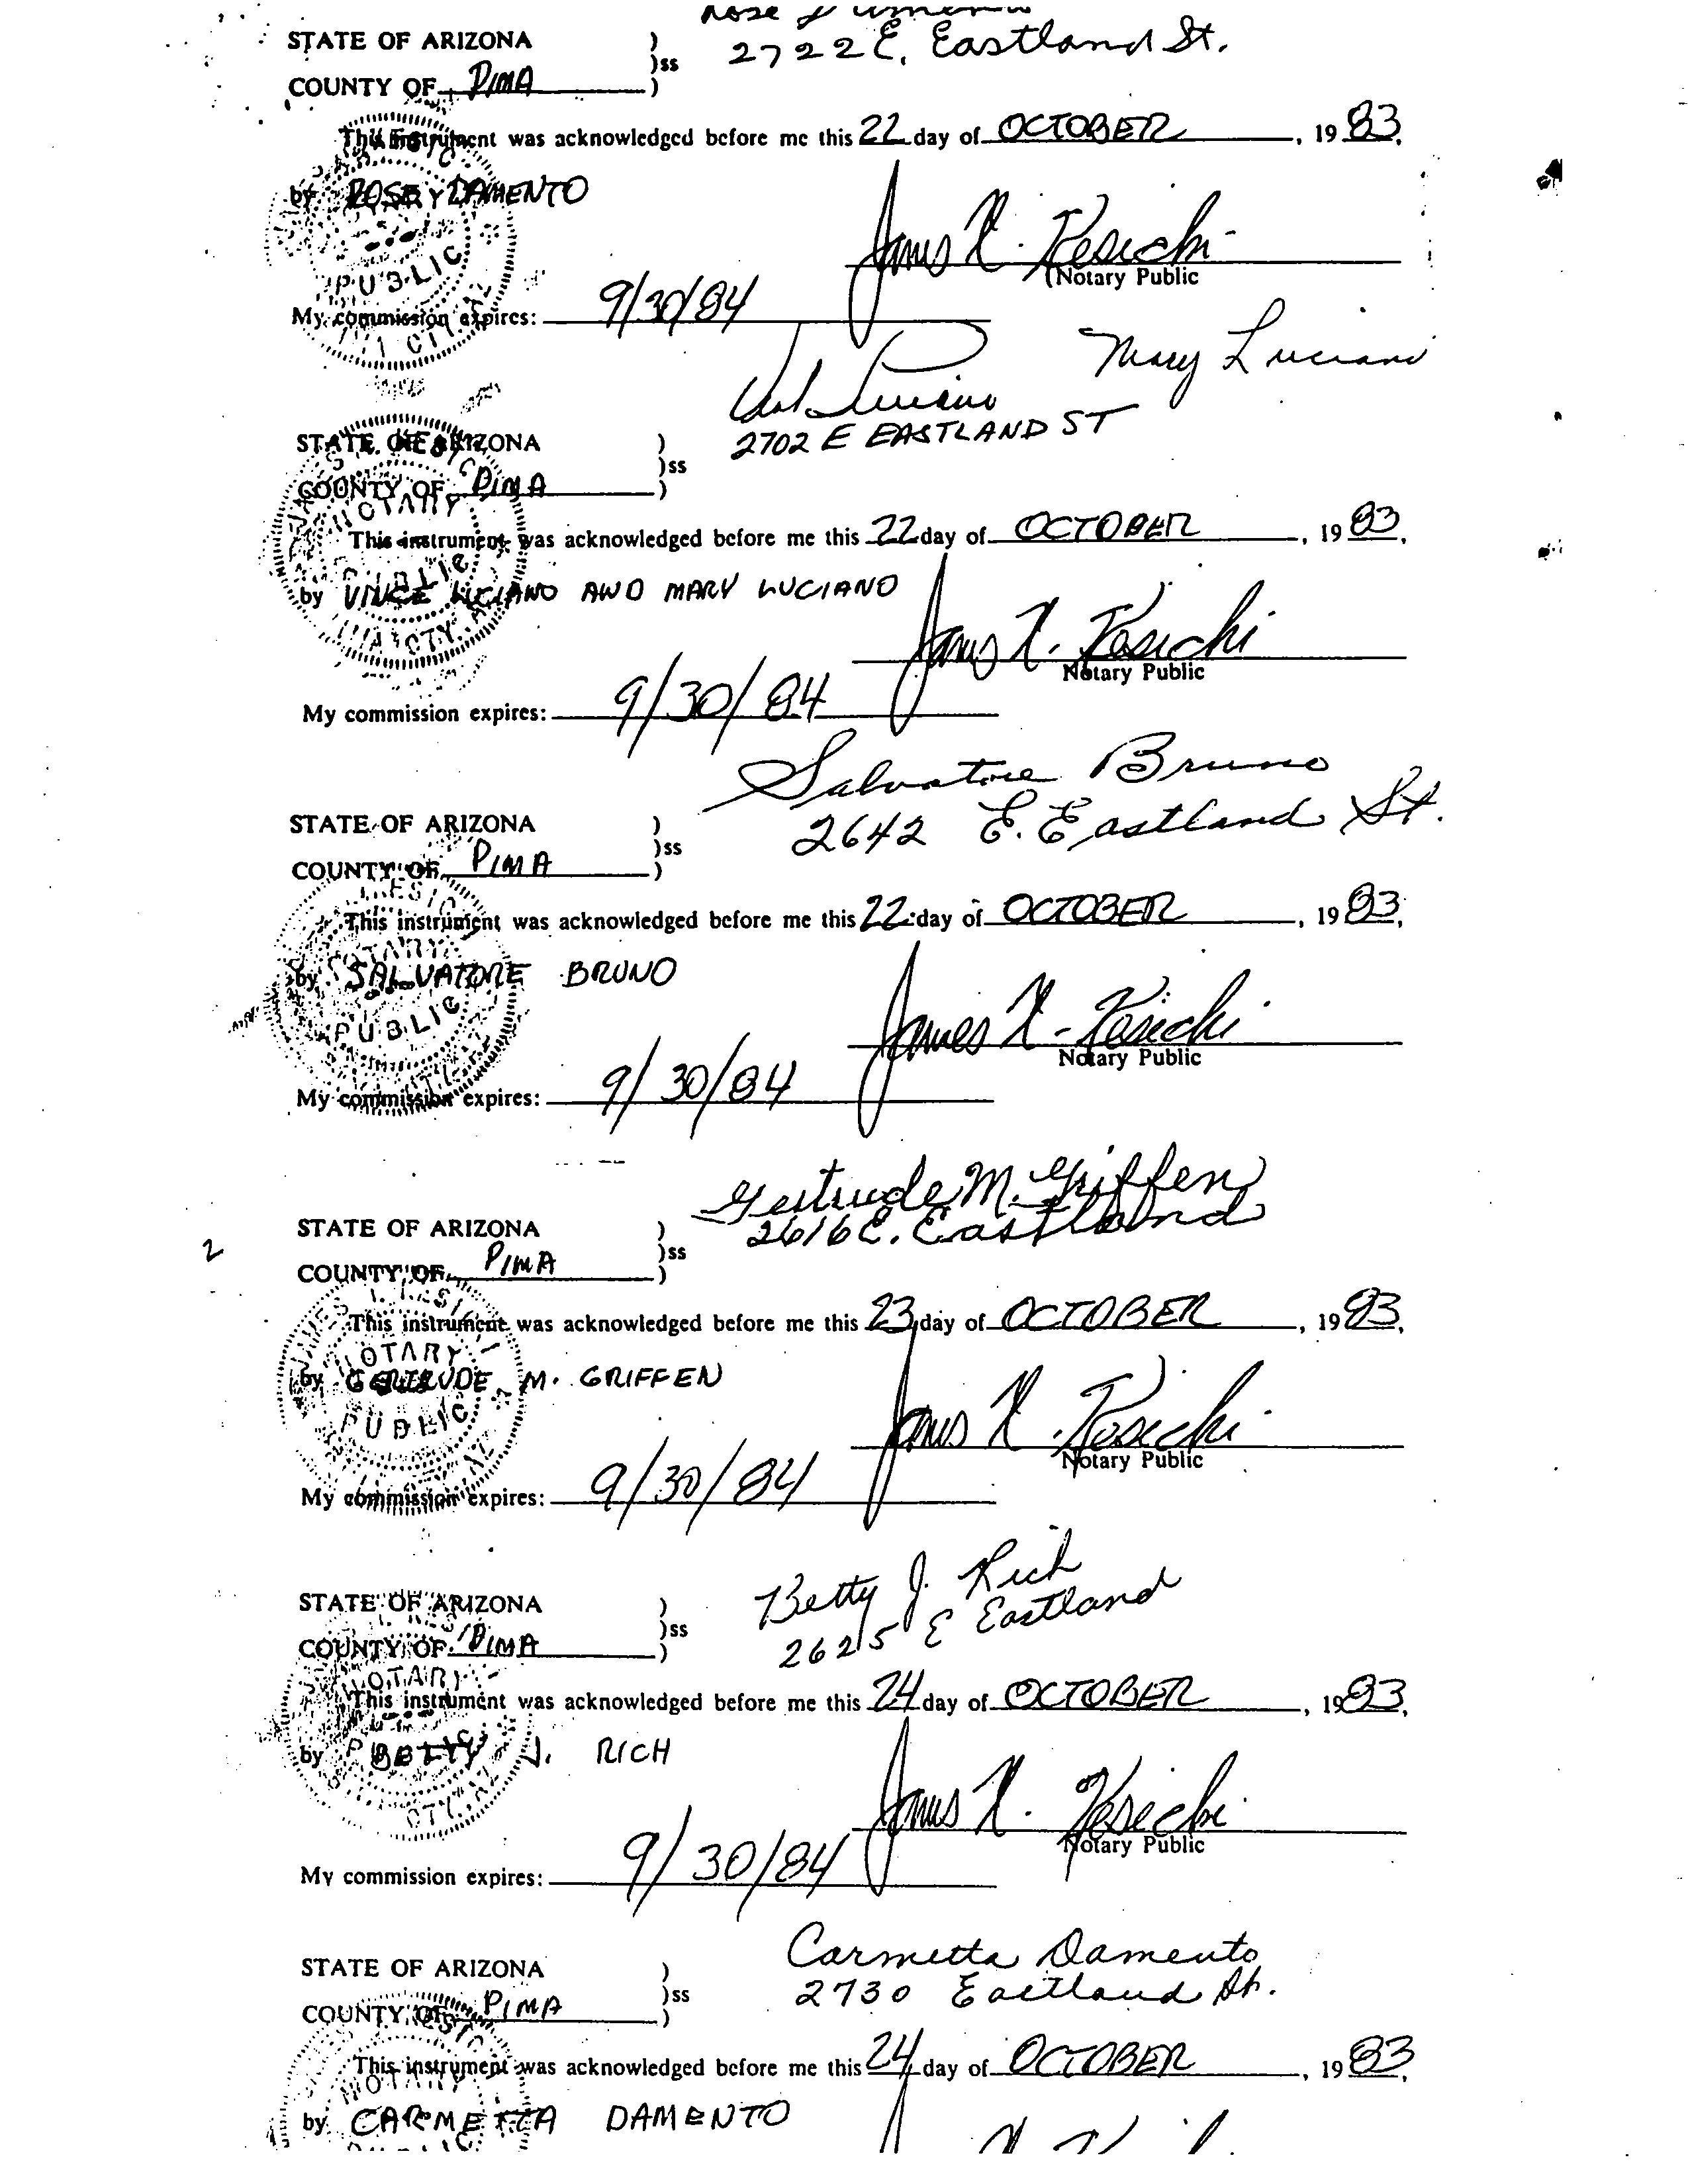 Rose
STATE OF ARIZONA ) 2722 E. Eastland St.
)ss
COUNTY OF PIMA )
This instrument was acknowledged before me this 22 day of OCTOBER, 1983,
by ROSE Y DAMENTO
Notary Public
My commission expires: 9/30/84
Mary Luciano
Luciano
2702 E EASTLAND ST
STATE OF ARIZONA )
)ss
COUNTY OF PIMA )
This instrument was acknowledged before me this 22 day of OCTOBER, 1983,
by VINCE LUCIANO AND MARY LUCIANO
Notary Public
My commission expires: 9/30/84
Salvatore Bruno
STATE OF ARIZONA ) 2642 E. Eastland St.
)ss
COUNTY OF PIMA )
This instrument was acknowledged before me this 22 day of OCTOBER, 1983,
by SALVATORE BRUNO
PUBLIC
James
Notary Public
My commission expires: 9/30/84
Gertrude M. Griffen
STATE OF ARIZONA ) 2616 E. Eastland
)ss
COUNTY OF PIMA )
This instrument was acknowledged before me this 23 day of OCTOBER, 1983,
NOTARY
by GERTRUDE M. GRIFFEN
PUBLIC
Notary Public
My commission expires: 9/30/84
Betty J. Rich
STATE OF ARIZONA ) 2625 E Eastland
)ss
COUNTY OF PIMA )
NOTARY
This instrument was acknowledged before me this 24 day of OCTOBER, 1983,
by BETTY J. RICH
Notary Public
My commission expires: 9/30/84
Carmetta Damento
STATE OF ARIZONA ) 2730 Eastland St.
)ss
COUNTY OF PIMA )
This instrument was acknowledged before me this 24 day of OCTOBER, 1983,
NOTARY
by CARMETTA DAMENTO